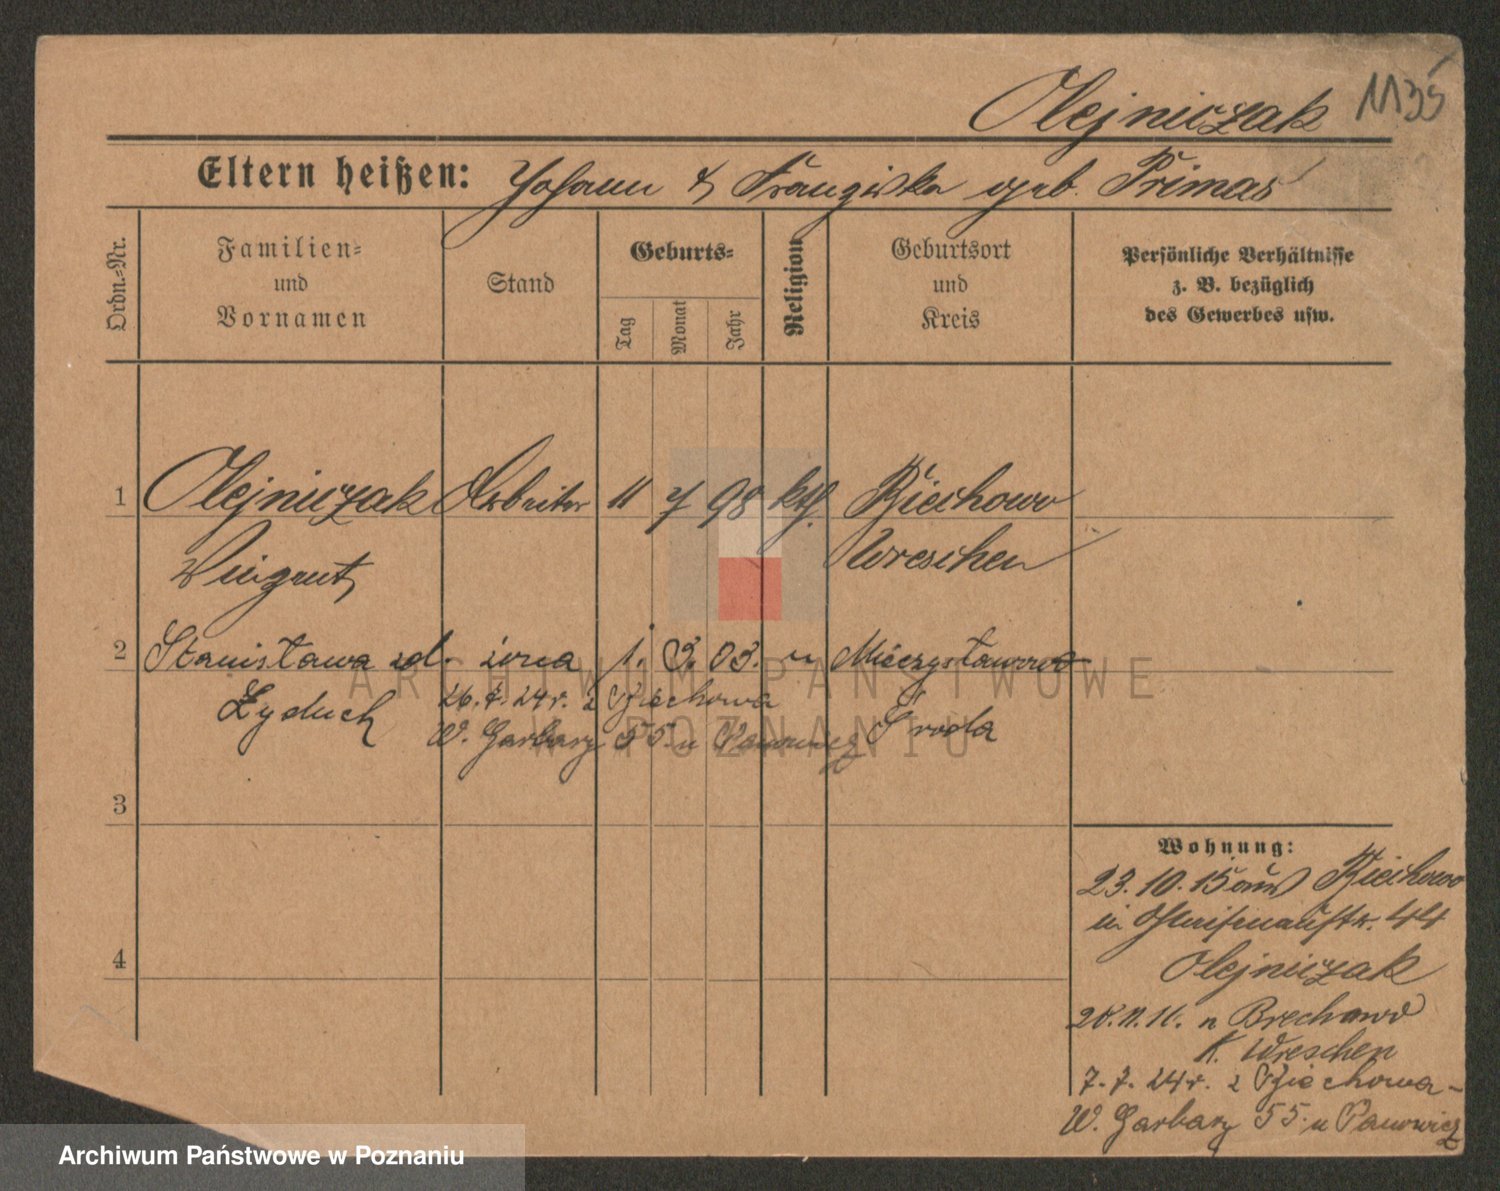 Olejniczak 1135
Eltern heißen: Johann & Franziska geb. Primas
Ordn.=Nr.
Familien=
und
Vornamen
Stand
Geburts=
Tag
Monat
Jahr
Religion
Geburtsort
und
Kreis
Persönliche Verhältnisse
z. B. bezüglich
des Gewerbes usw.
1 Olejniczak Arbeiter 11 7 98 kth. Biechowo
Vinzent Wreschen
2 Stanisława zd. żona 1. 3. 03. " Mieczysławowo
Łyduch 26. 7. 24 r. z Biechowa Środa
W. Garbary 55. u Panowicz
3
4
Wohnung:
23. 10. 15 aus Biechowo
in 44
Olejniczak
28. 11. 16. n Biechowo
K. Wreschen
7. 7. 24 r. z Biechowa -
W. Garbary 55. u Panowicz
ARCHIWUM PAŃSTWOWE
W POZNANIU
Archiwum Państwowe w Poznaniu